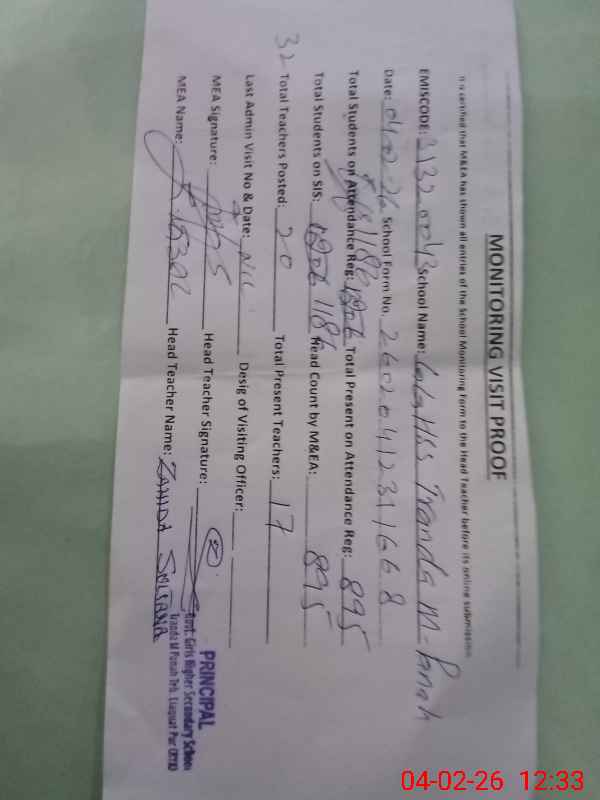 MONITORING VISIT PROOF
It is certified that M&EA has shown all entries of the School Monitoring Form to the Head Teacher before its online submission
EMISCODE: 31320043 School Name: Tranda M. Panah
Date: 04-02-26 School Form No. 26020412311668
Total Students on Attendance Reg: 1186 Total Present on Attendance Reg: 895
Total Students on SIS: 1186 Head Count by M&EA: 895
32 Total Teachers Posted: 20 Total Present Teachers: 17
Last Admin Visit No & Date: Nil Desig of Visiting Officer:
MEA Signature: Head Teacher Signature:
MEA Name: Head Teacher Name: ZAHIDA SULTANA
PRINCIPAL
Govt. Girls Higher Secondary School
Tranda M Panah Teh. Liaquat Pur (RYK)
04-02-26 12:33